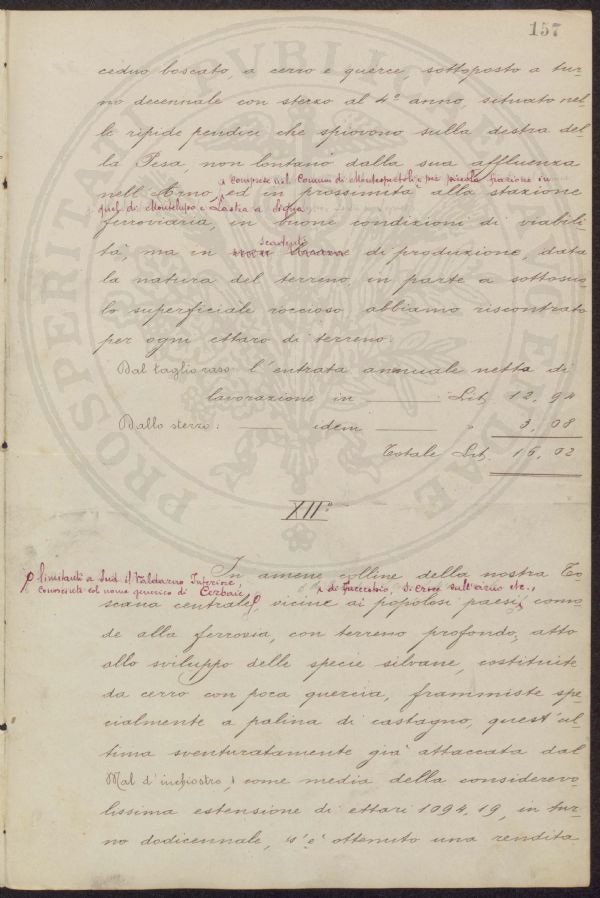 157
ceduo boscato, a cerro e querce, sottoposto a tur-
no decennale con sterzo al 4º anno, situato nel-
le ripide pendici che spiovono sulla destra del-
la Pesa, non lontano dalla sua affluenza
comprese nel Comuni di Montespertoli e per piccola frazione in
nell'Arno, ed in prossimità alla stazione
quel di Montelupo e Lastra a Signa
ferroviaria, in buone condizioni di viabili-
scadenti
tà, ma in di produzione, data
la natura del terreno in parte a sottosuo-
lo superficiale roccioso abbiamo riscontrato
per ogni ettaro di terreno:
Dal taglio raso l'entrata annuale netta di
lavorazione in — Lit. 12,94
Dallo sterzo: — idem — " 3,08
Totale Lit. 16,02
XIIº
limitanti a Sud il Valdarno Inferiore,
In amene colline della nostra To-
conosciute col nome generico di Cerbaie
di Fucecchio, S. Croce sull'Arno etc.,
scana centrale, vicine ai popolosi paesi, como-
de alla ferrovia, con terreno profondo, atto
allo sviluppo delle specie silvane, costituite
da cerro con poca quercia, frammiste spe-
cialmente a palina di castagno, quest'ul-
tima sventuratamente già attaccata dal
Mal d'inchiostro, come media della considerevo-
lissima estensione di ettari 1094,19, in tur-
no dodicennale, s'è ottenuto una rendita
PROSPERITATI PVBLICAE AVGENDAE